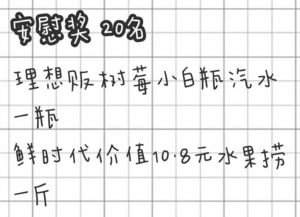 安慰奖 20名
理想贩树莓小白瓶汽水
一瓶
鲜时代价值10.8元水果捞
一斤